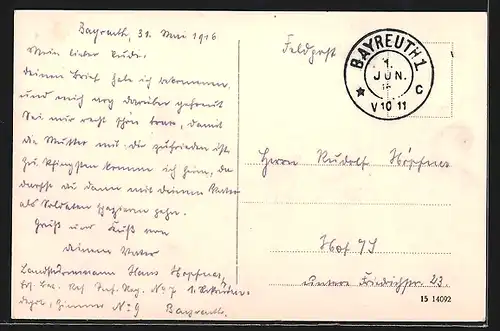 Bayreuth, 31. Mai 1916
Mein lieber Rudi.
deinen Brief hab ich bekommen
und mich darüber gefreut
Sei nur recht schön brav, damit
die Mutter mit dir zufrieden ist.
Zu Pfingsten komme ich heim, da
darfst du dann mit deinem Vater
als Soldaten spazieren gehn.
Gruß und Kuß von
deinem Vater
Landsturmmann Hans Höpfner,
Inf. Reg. No 7 1. Rekruten-
depot, Zimmer No 9 Bayreuth.
Feldpost
BAYREUTH 1
1.
JUN.
V 10 11
C
Herrn Rudolf Höpfner
Hof
untere 23.
15 14092